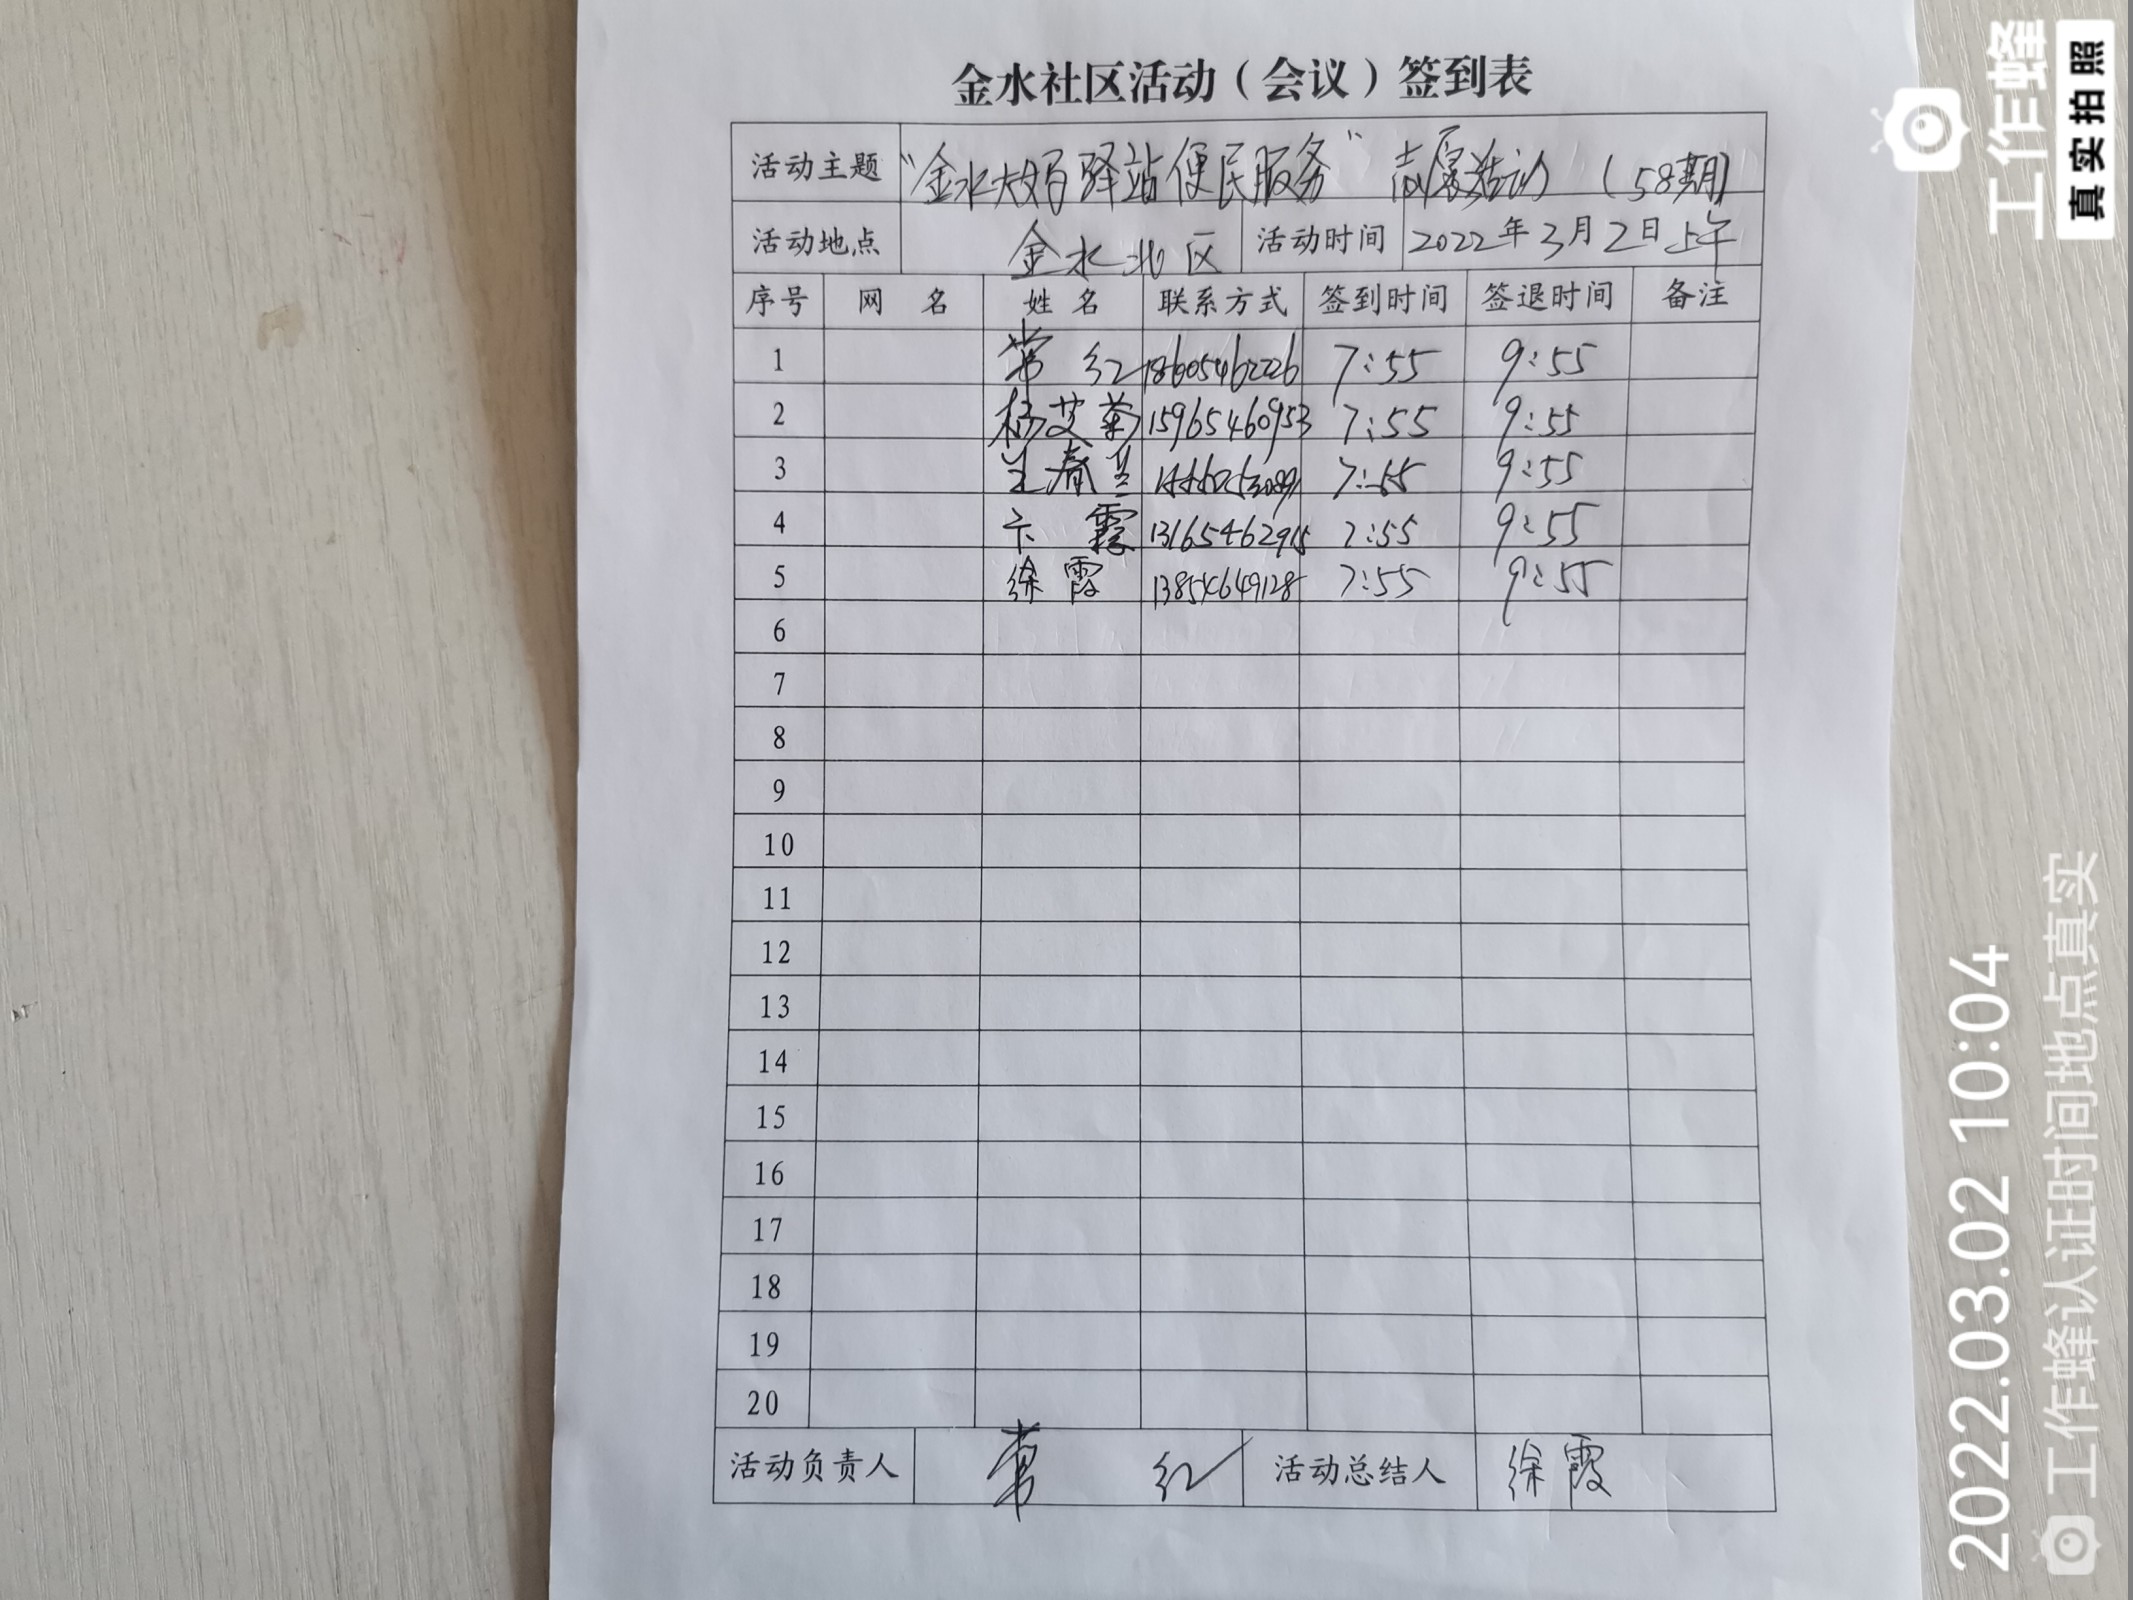 金水社区活动（会议）签到表
活动主题 “金水大妈驿站便民服务”志愿活动（58期）
活动地点 金水北区 活动时间 2022年3月2日上午
序号 网名 姓名 联系方式 签到时间 签退时间 备注
1 常红 18605462226 7:55 9:55
2 杨艾菊 15965460953 7:55 9:55
3 王春兰 7:55 9:55
4 卞霞 13165462915 7:55 9:55
5 徐霞 7:55 9:55
6
7
8
9
10
11
12
13
14
15
16
17
18
19
20
活动负责人 常红 活动总结人 徐霞
工作蜂
真实拍照
2022.03.02 10:04
工作蜂认证时间地点真实